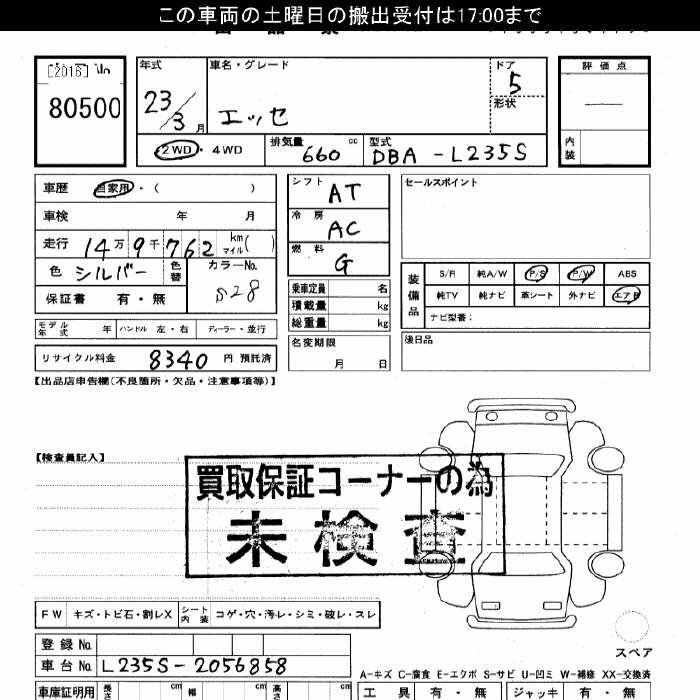 この車両の土曜日の搬出受付は17:00まで
[2016] No
80500
年式 車名・グレード ドア 評価点
23/3月 エッセ 5
形状
2WD・4WD 排気量 660 cc 型式 DBA-L235S 内装
車歴 自家用・( ) シフト AT セールスポイント
車検 年 月 冷房 AC
走行 14万9千762 km マイル( ) 燃料 G
色 シルバー 色替 カラーNo. S28
保証書 有・無
乗車定員 名
積載量 kg
総重量 kg
装備品 S/R 純A/W P/S P/W ABS
純TV 純ナビ 革シート 外ナビ エアB
ナビ型番:
モデル年式 年 ハンドル 左・右 ディーラー・並行
名変期限 月 日
後日品
リサイクル料金 8340 円 預託済
【出品店申告欄(不良箇所・欠品・注意事項等)】
【検査員記入】
買取保証コーナーの為
未検査
FW キズ・トビ石・割レX シート内装 コゲ・穴・汚レ・シミ・破レ・スレ
スペア
登録No.
車台No. L235S-2056858
A-キズ C-腐食 E-エクボ S-サビ U-凹ミ W-補修 XX-交換済
車庫証明用 長さ cm 幅 cm 高さ cm 工具 有・無 ジャッキ 有・無